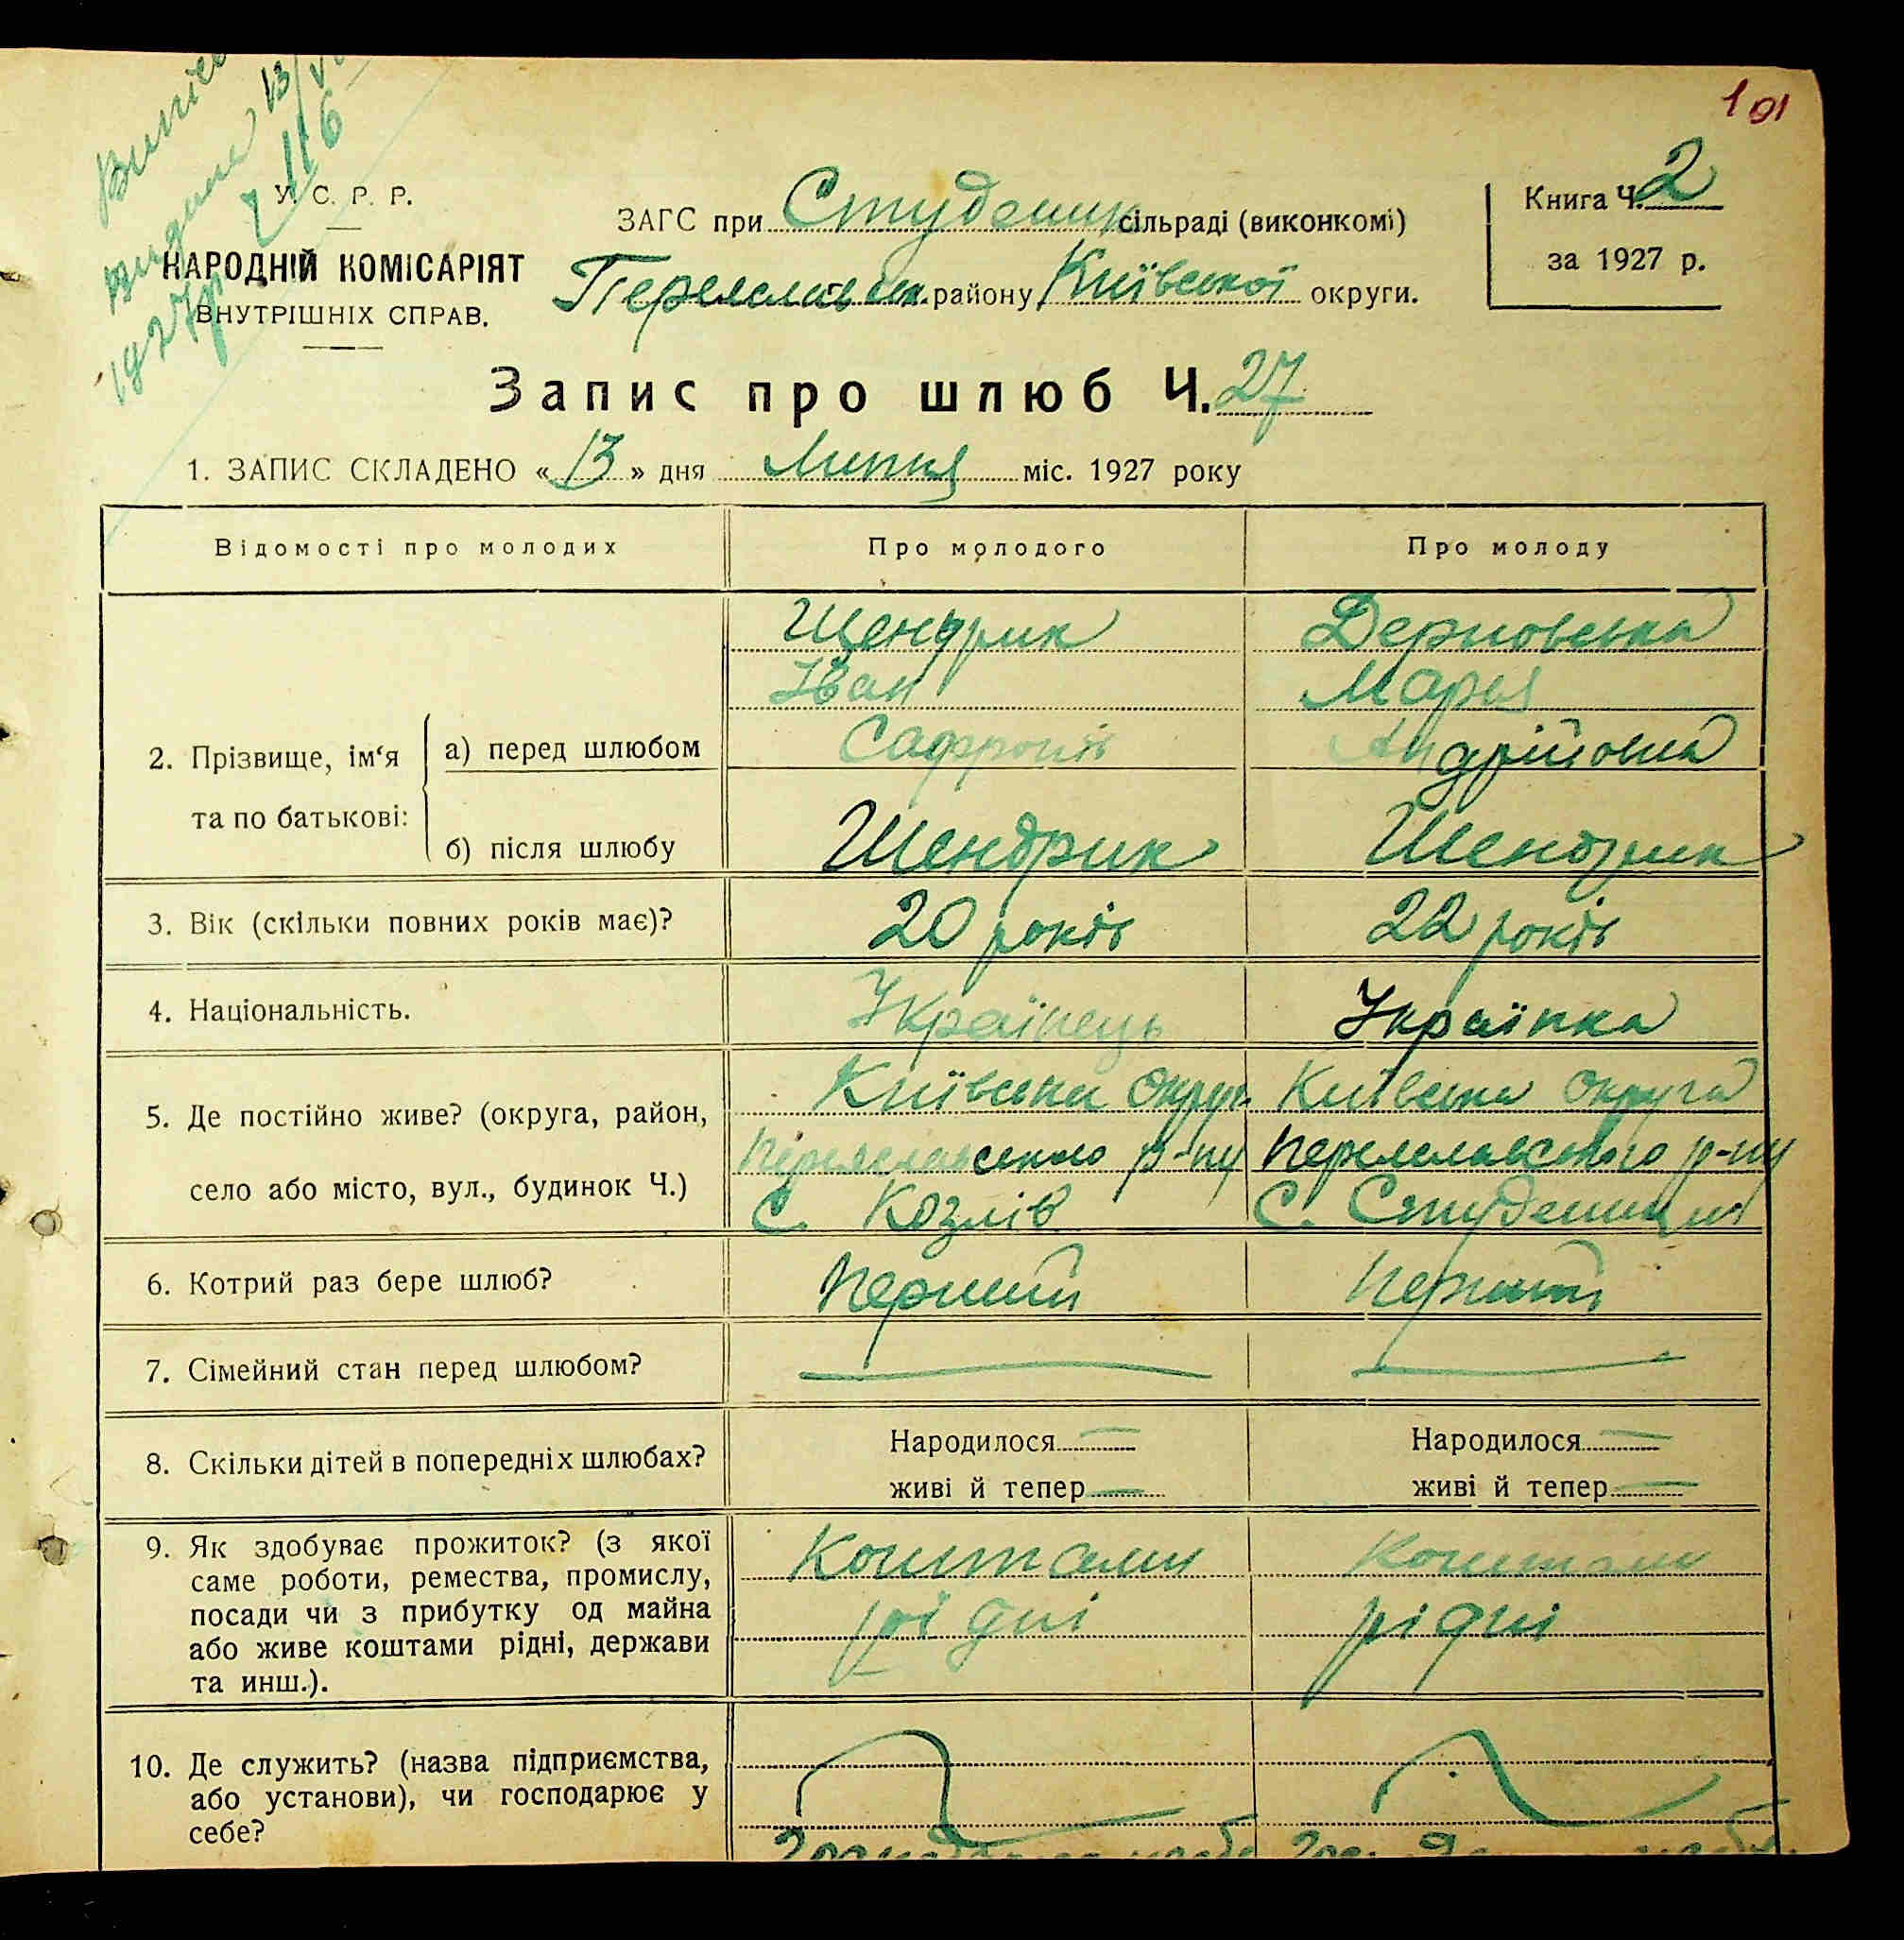 101
У. С. Р. Р.
НАРОДНІЙ КОМІСАРІЯТ
ВНУТРІШНІХ СПРАВ.
1927р
№ 116
ЗАГС при Студеник сільраді (виконкомі)
району Київської округи.
Книга Ч. 2
за 1927 р.
Запис про шлюб Ч. 27
1. ЗАПИС СКЛАДЕНО « 13 » дня Липня міс. 1927 року
Відомості про молодих Про молодого Про молоду
2. Прізвище, ім'я та по батькові:
а) перед шлюбом
Щендрик Дерновська
Іван Марья
Сафронів Андрійовна
б) після шлюбу Шендрик Шендрик
3. Вік (скільки повних років має)? 20 років 22 років
4. Національність. Українець Українка
5. Де постійно живе? (округа, район,
село або місто, вул., будинок Ч.)
Київська Округа Київська Округа
р-ну р-ну
С. Козлів С.
6. Котрий раз бере шлюб? перший перший
7. Сімейний стан перед шлюбом?
8. Скільки дітей в попередніх шлюбах?
Народилося Народилося
живі й тепер живі й тепер
9. Як здобуває прожиток? (з якої
саме роботи, ремества, промислу,
посади чи з прибутку од майна
або живе коштами рідні, держави
та инш.).
Коштами Коштами
рідні рідні
10. Де служить? (назва підприємства,
або установи), чи господарює у
себе?